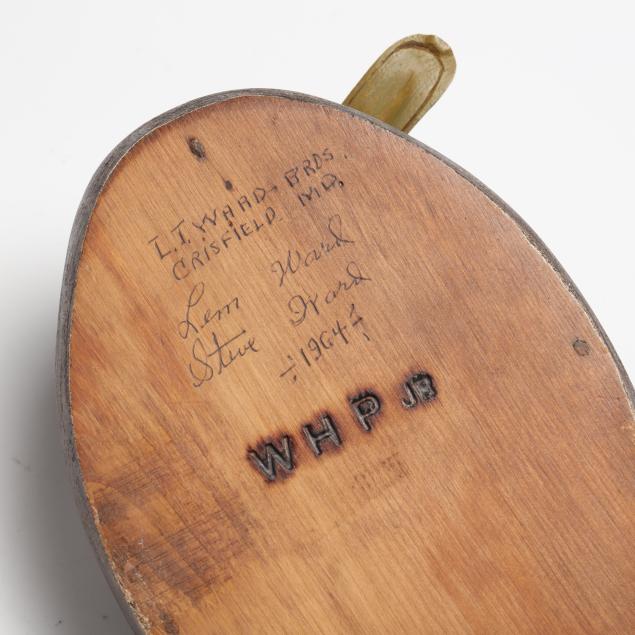 L.T. WARD - BROS.
CRISFIELD. MD.
Lem Ward
Steve Ward
÷1964÷
WHP JR